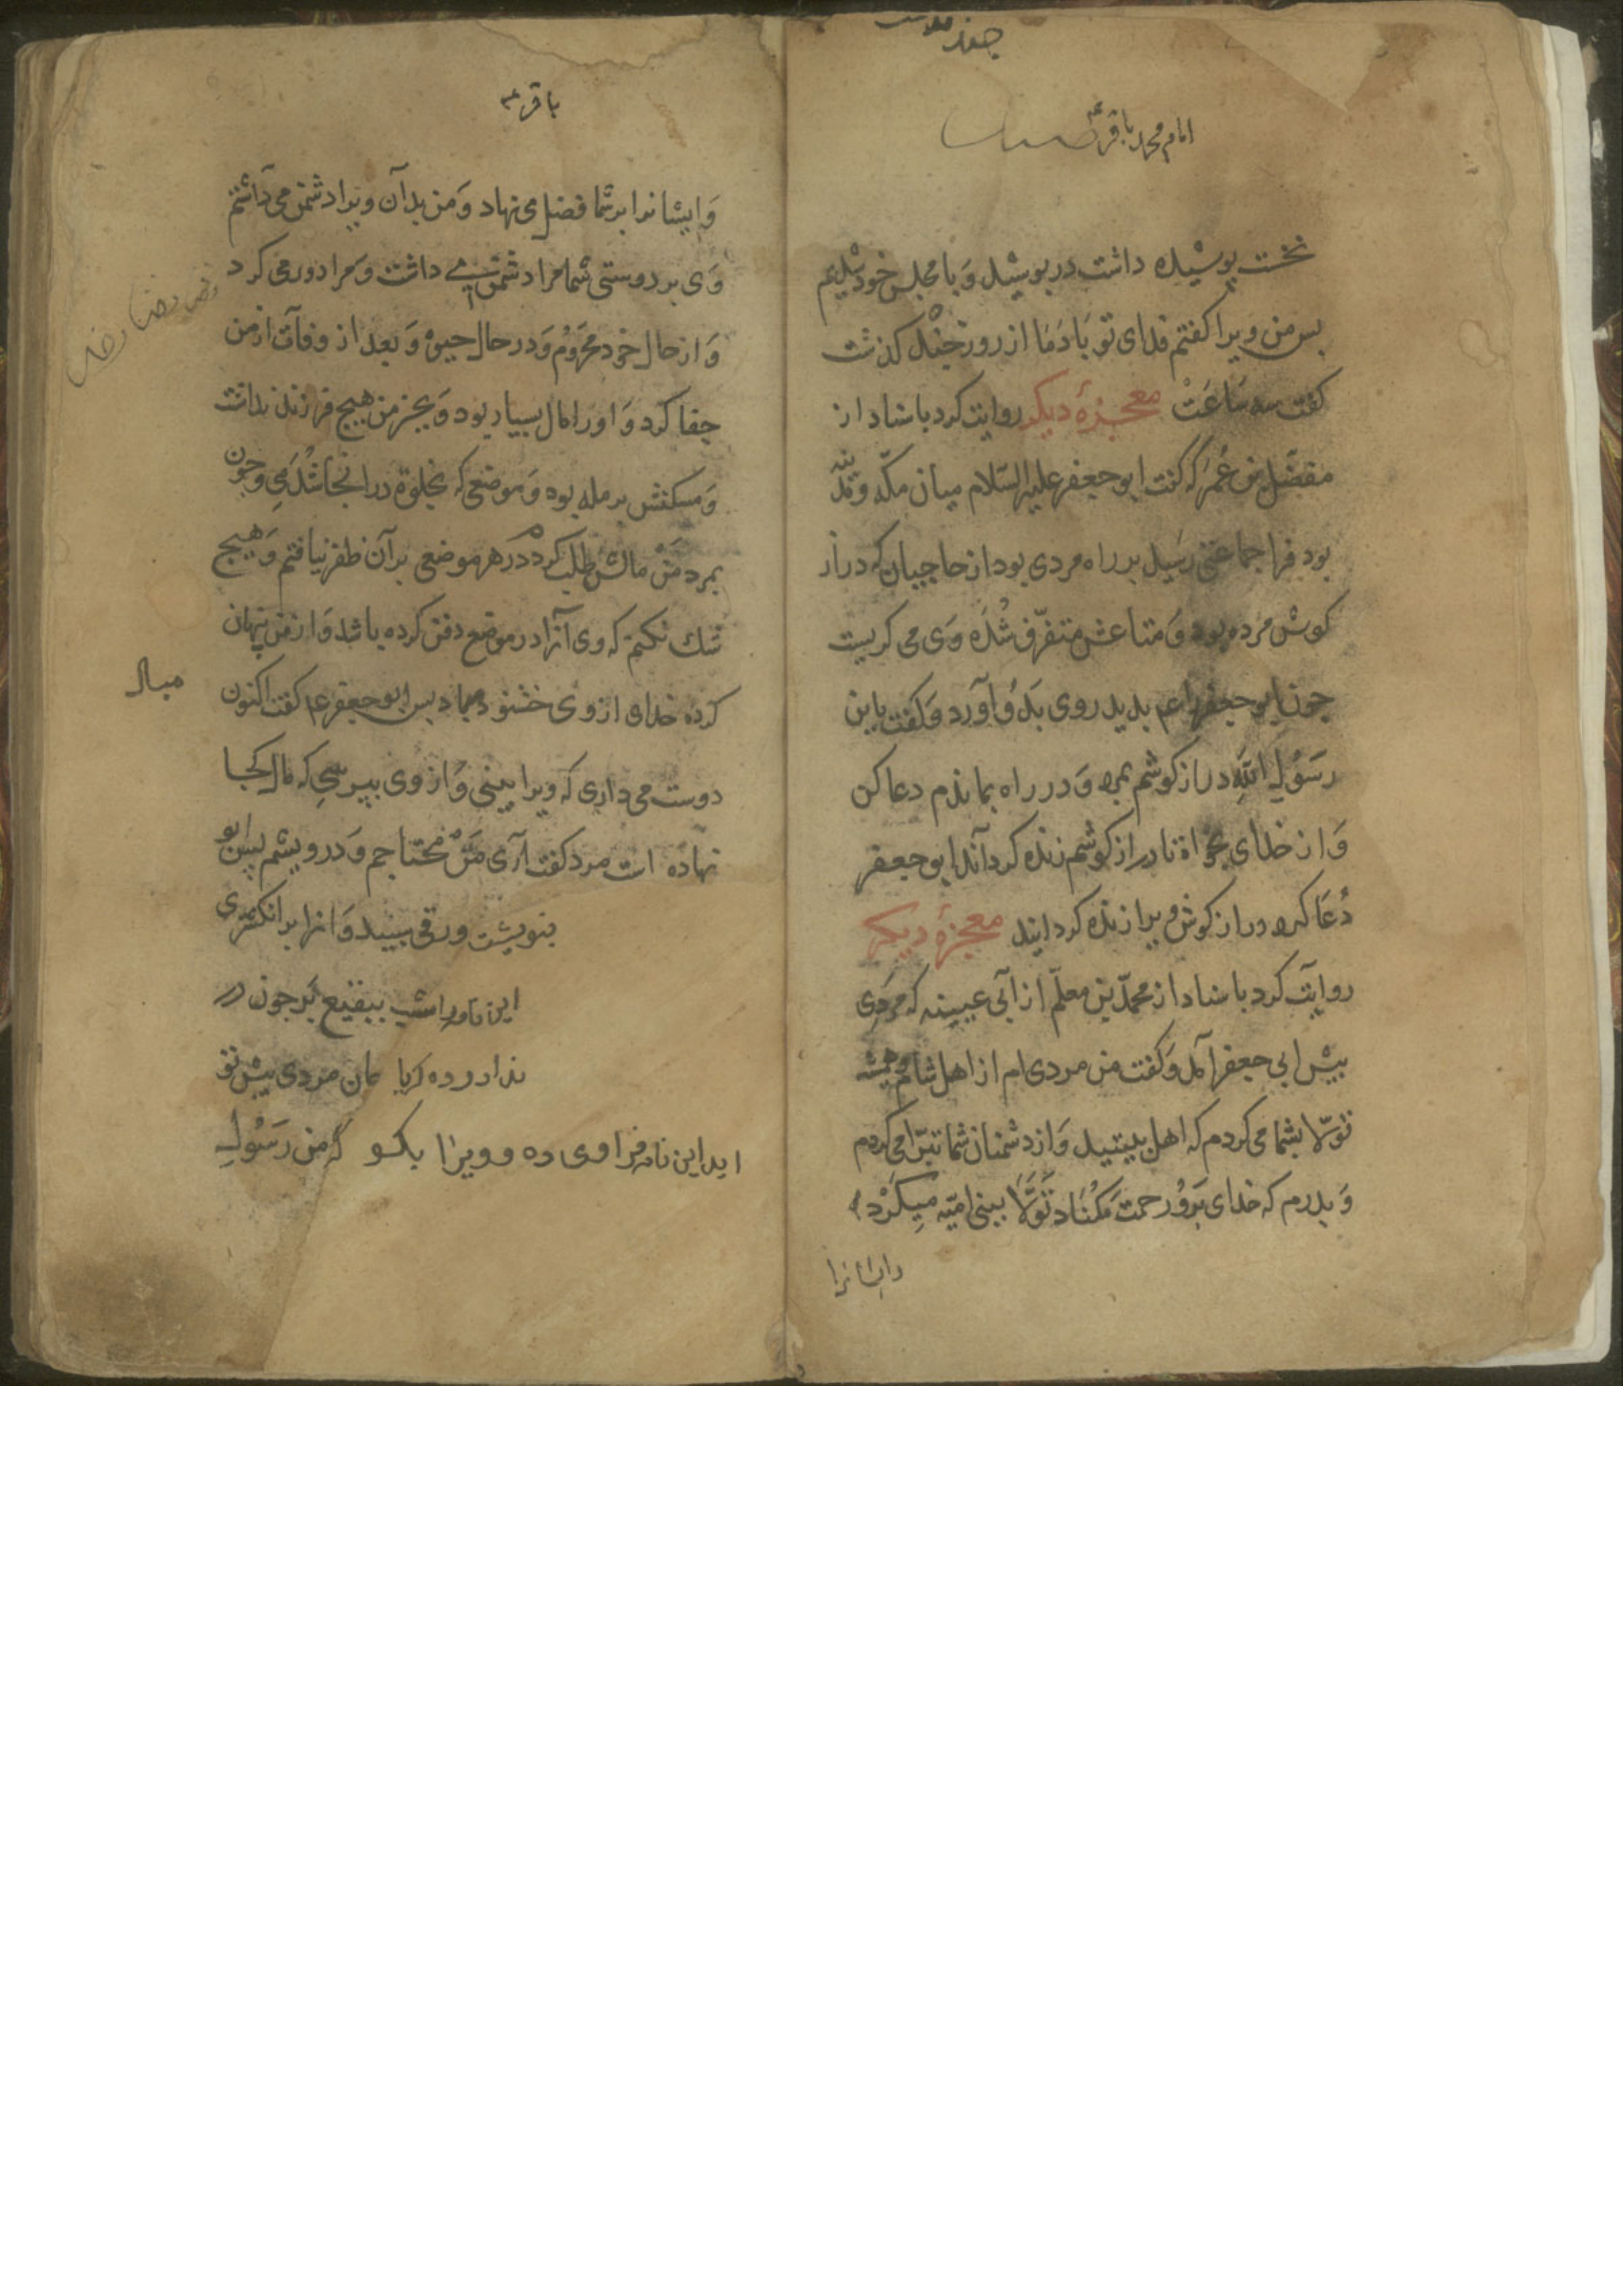 امام محمد باقر ع
نخست پوشیده داشت در پوشید و با مجلس خود شدیم
بس من ویرا کفتم فدای تو بَادَ مَا از روز جند کذشت
کفت سه سَاعَتْ معجزهٔ دیکر روایت کرد باسناد از
مفضّل بن عُمَر که کفت ابو جعفر علیه السّلام میان مکّه و مدینه
بود فرا جماعتی رسید بر راه مردی بود از حاجیان که دراز
کوش مرده بود وَ متاعش متفرّق شُدَه وَی می کریست
جون ابو جعفر را ع بدید روی بَدُو آوَرد وَ کفت یابن
رسَوُلِ اللهِ دراز کوشم بمرد وَ در راه بماندم دعا کن
وَ از خدای بخواه تا دراز کوشم زنده کرداند ابو جعفر
دُعَا کرد دراز کوش ویرا زنده کردانید معجزهٔ دیکر
روایَت کرد باسناد از محمّد بن معلّم از ابی عیینه که مردِی
بیش ابی جعفر آمد وَ کفت من مردی ام از اهل شام همیشه
تولّا بشما می کردم که اهل بیتید وَ از دشمنان شما تبرّا می کردم
وَ بدرم که خدای بَروُ رحمت مَکُنَاد تَوَلَّا ببنی امّیه میکَرْد
وایشانرا
باقر ع
وَ ایشانرا بر شما فضل می نهاد وَ من بدآن ویرا دشمن می دآشتم
وَی بر دوستی شما مرا دشمن می داشت وَ مرا دور می کرد
وَ از حال خود محروُم وَ در حال حیوة وَ بعد از وفات از من
جفا کرد وَ اورا مال بسیار بود وَ بجز من هیج فرزند نداشت
وَ مسکنش برمله بود وَ موضعی که بخلوة در انجا شُدَمِی وَ جون
بمرد مَنْ مالش طلب کردم در هر موضعی بر آن ظفر نیافتم وَ هیج
شك نکنم که وی آنرا در موضع دفن کرده باشد وَ از من پنهان
کرده خدای از وی خشنود مباد بس ابو جعفر ع کفت اکنون
مباد
دوست می داری که ویرا ببینی وَ از وی ببرسی که مال کجا
نهاده است مرد کفت آری مَنْ محتاجم وَ درویشم پس ابو
بنویشت ورقی سبید وَ انرا بر انکشتری
این نامه را امشب ببقیع بَر جون در
ندا در ده کریا مردی بیش تو
اید این نامه فرا وی ده و ویرا بکو که من رَسَوُلِ